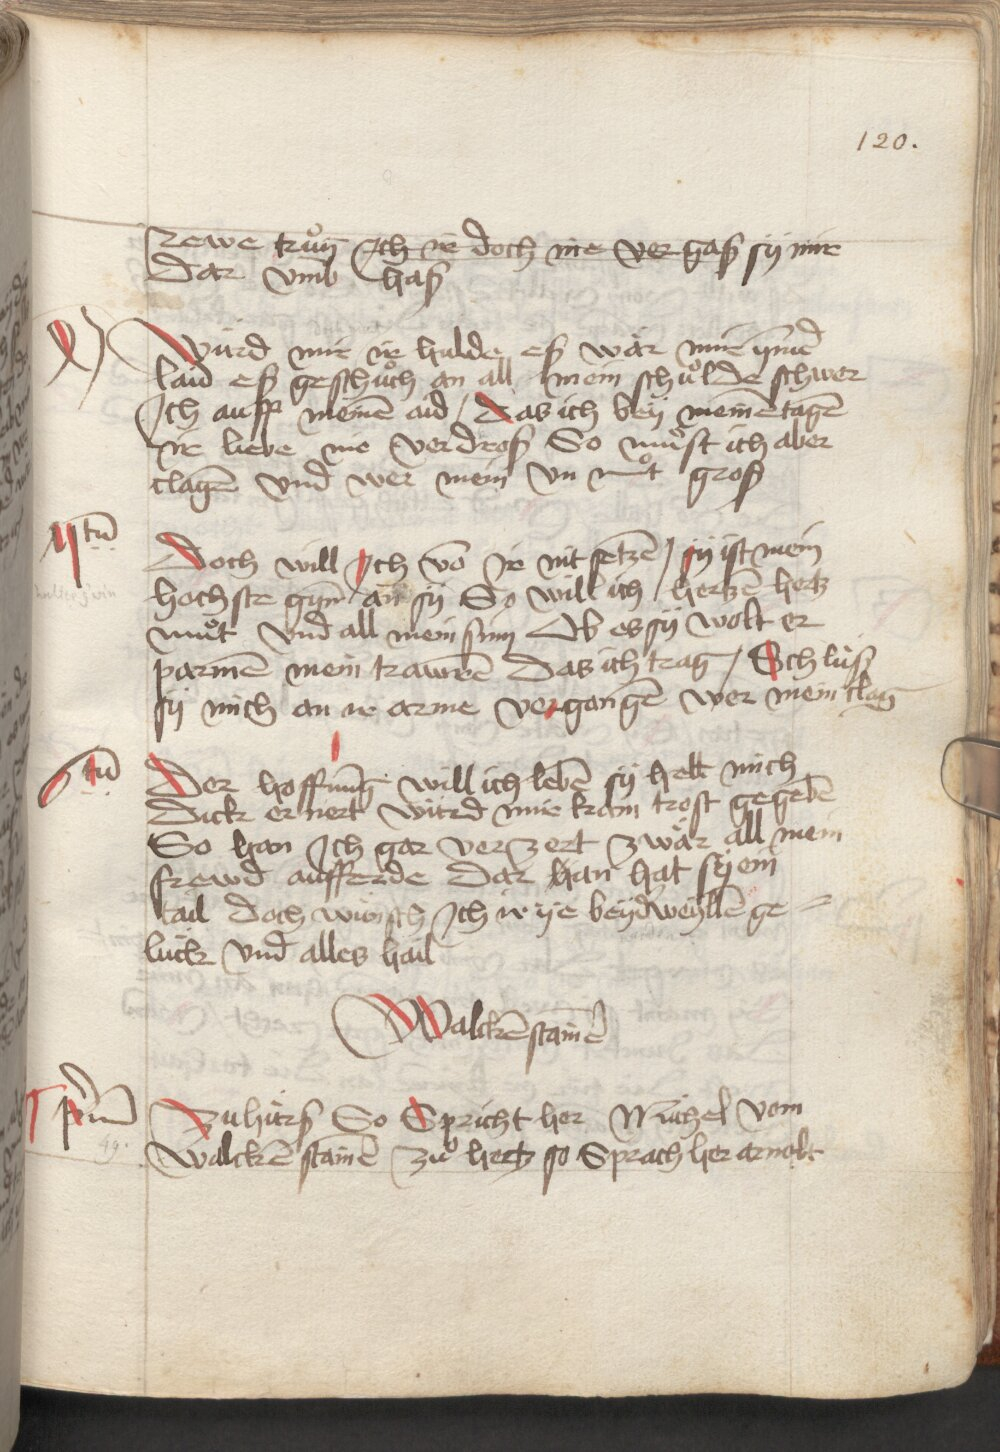 120.
rewe trůg Ich ir doch nie vergaß sÿ mir
Dar vmb haß
Wurd mir ir hulde eß wär mir ÿmē
laid eß geschůch an all mein schůlde schwer
Ich auff meinē aid / Das ich beÿ meinē tagē
ir liebe nie verdroß So můst ich aber
clagē vnd wer mein vn můt groß
4tū
Doch will Ich vō ir nit setzē / sÿ ist mein
hochste gÿm an sÿ So will ich / hertzē hertz
můt vnd all mein sinn Ob es sÿ wolt er
parmē mein trawrē Das ich trag / Schluß
sÿ mich an ir arme vergangē wer mein clag
6tū
Der hoffnūg will ich lebē sÿ helt mich
Dick ernert würd mir krain trost gegebē
So han Ich gar verzert zwar all mein
frewd auff erde Dar han hat sÿ ein
tail doch wünsch Ich ir ÿe beÿdweÿllē ge =
lück vnd alles hail
Walckēstainē
pimū Zuhürß So Spricht her Michel vom
49. Walckē stainē zů hertz so Sprach her arnolt